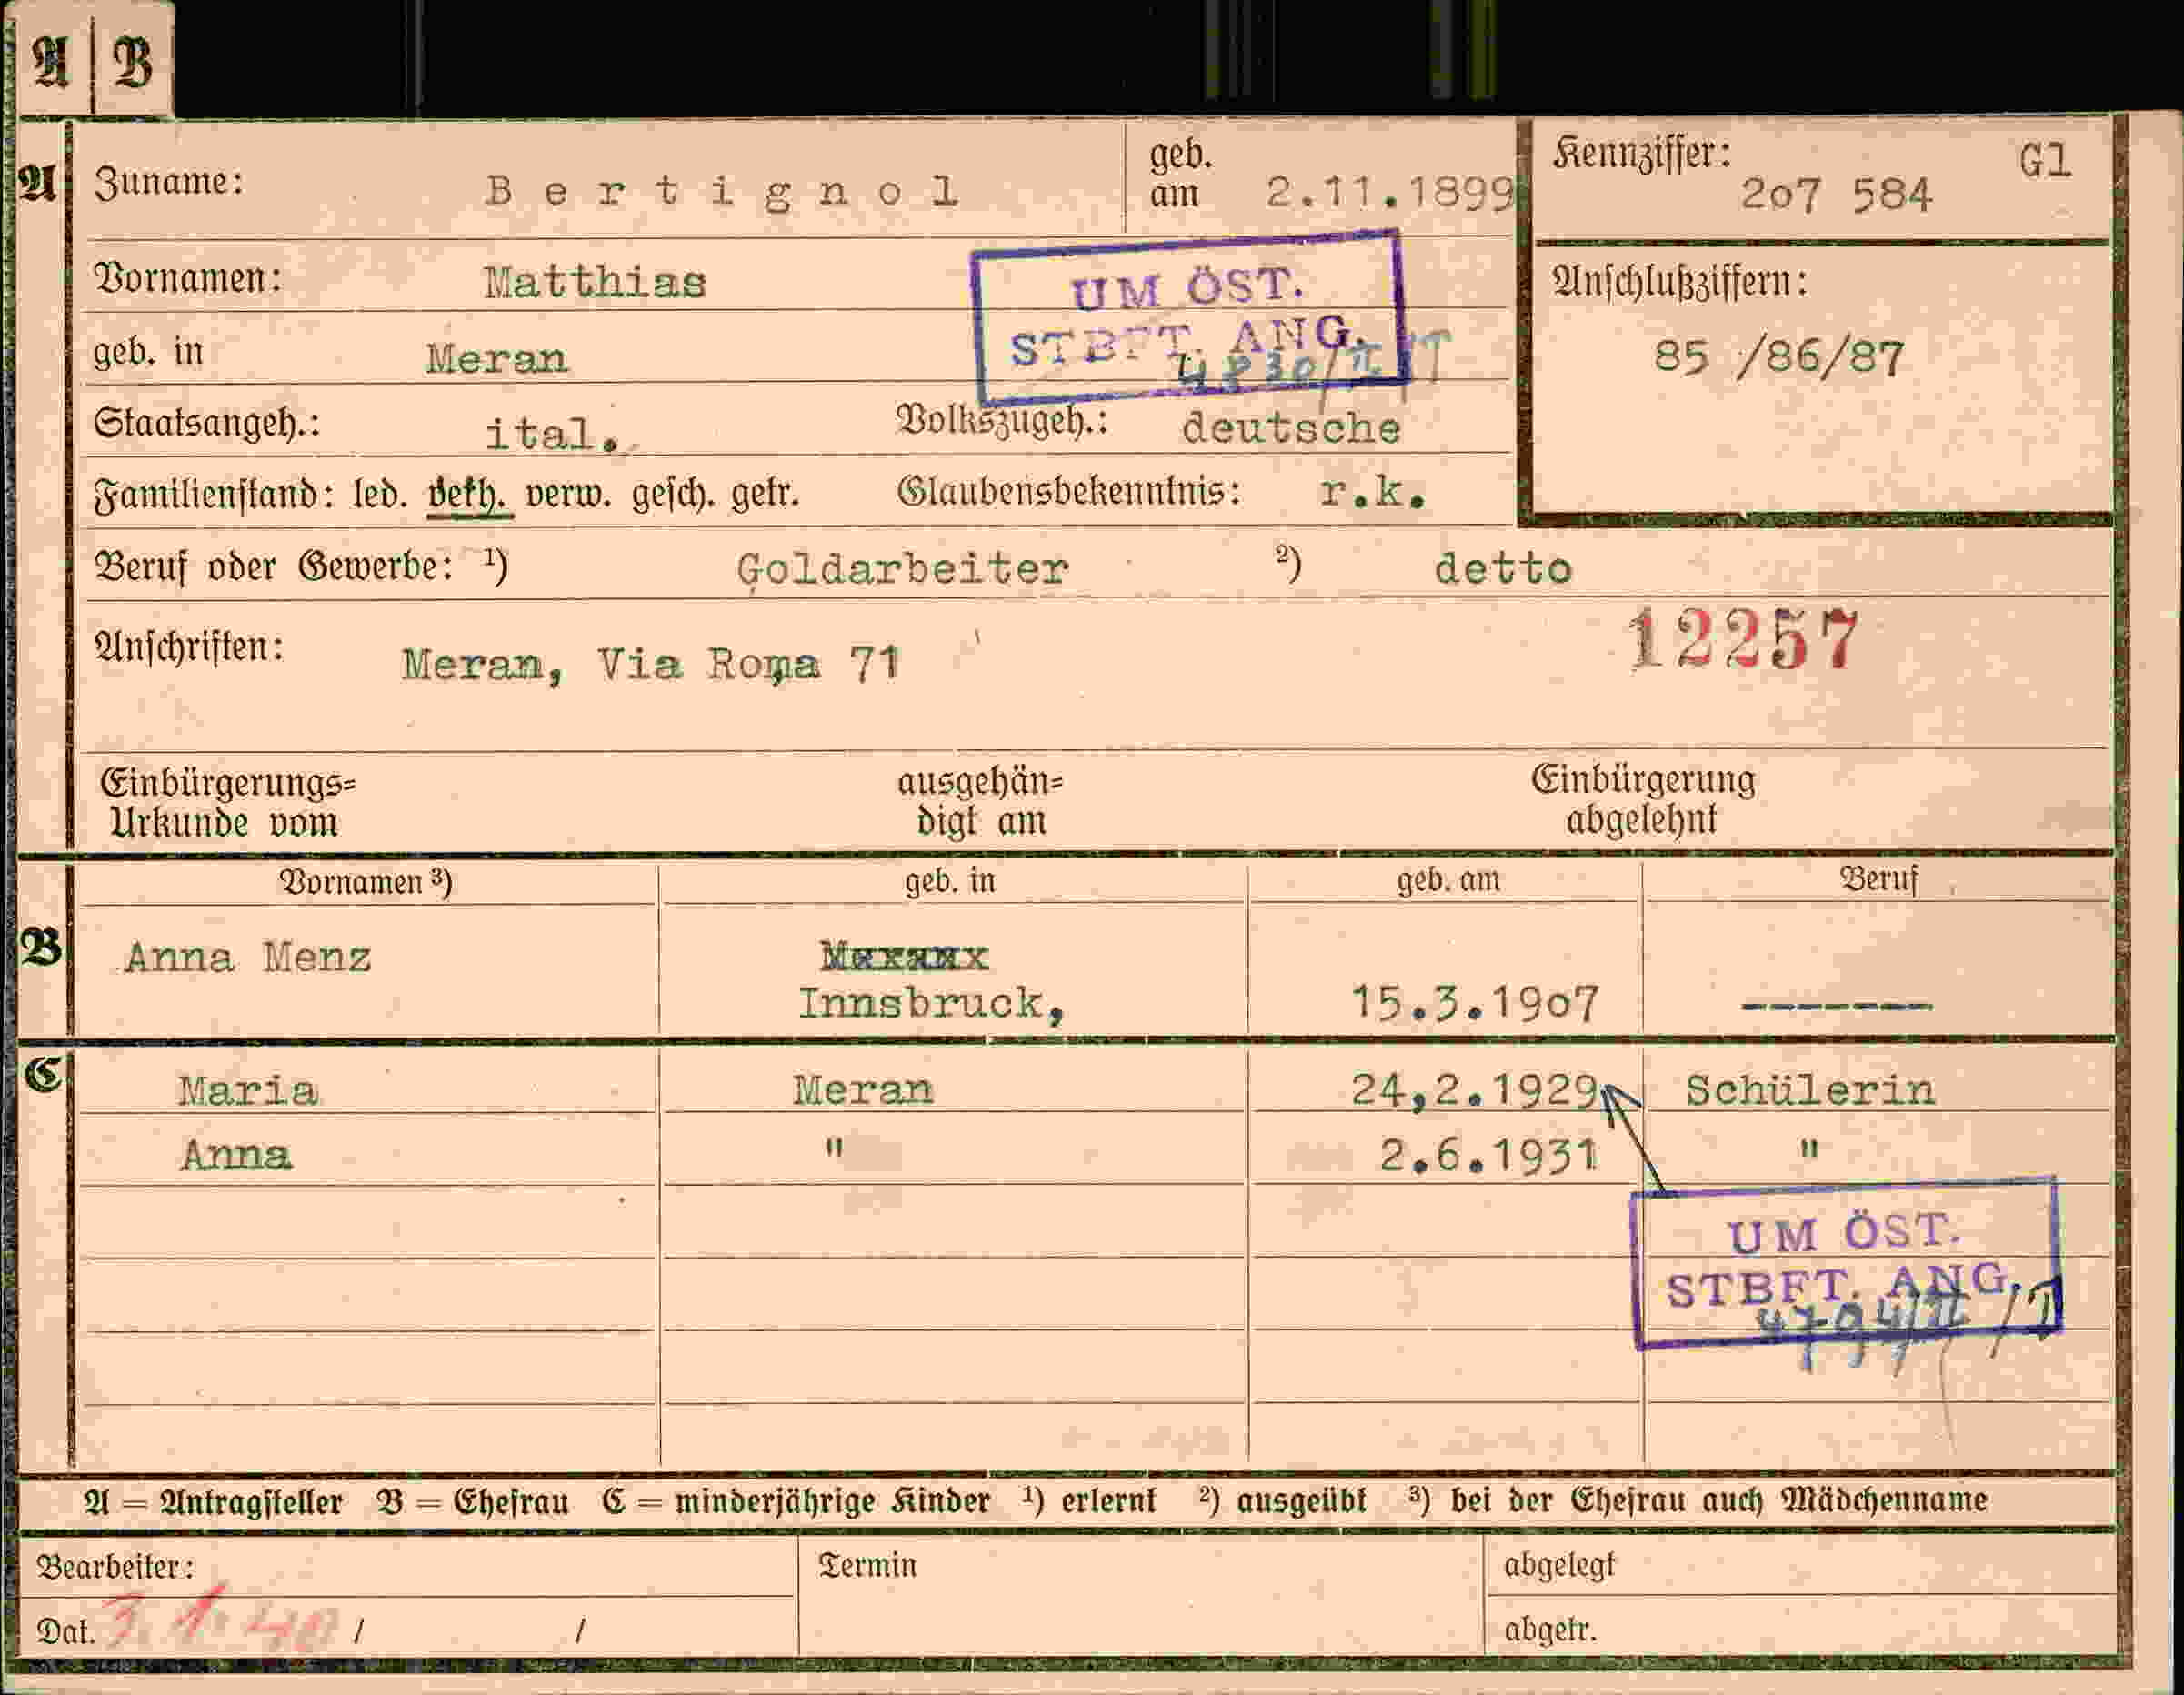 A B
A Zuname: Bertignol geb. am 2.11.1899 Kennziffer: 2o7 584 Gl
Vornamen: Matthias
UM ÖST.
STBFT. ANG.
Anschlußziffern:
geb. in Meran
85 /86/87
Staatsangeh.: ital. Volkszugeh.: deutsche
Familienstand: led. verh. verw. gesch. getr. Glaubensbekenntnis: r.k.
Beruf oder Gewerbe: ¹) Goldarbeiter ²) detto
12257
Anschriften: Meran, Via Roma 71
Einbürgerungs=
Urkunde vom
ausgehän=
digt am
Einbürgerung
abgelehnt
Vornamen ³) geb. in geb. am Beruf
B Anna Menz
Innsbruck, 15.3.19o7 -------
C Maria Meran 24,2.1929 Schülerin
Anna " 2.6.1931 "
UM ÖST.
STBFT. ANG.
4794/II
A = Antragsteller B = Ehefrau C = minderjährige Kinder ¹) erlernt ²) ausgeübt ³) bei der Ehefrau auch Mädchenname
Bearbeiter: Termin abgelegt
Dat. 3. 1. 40 / / abgetr.